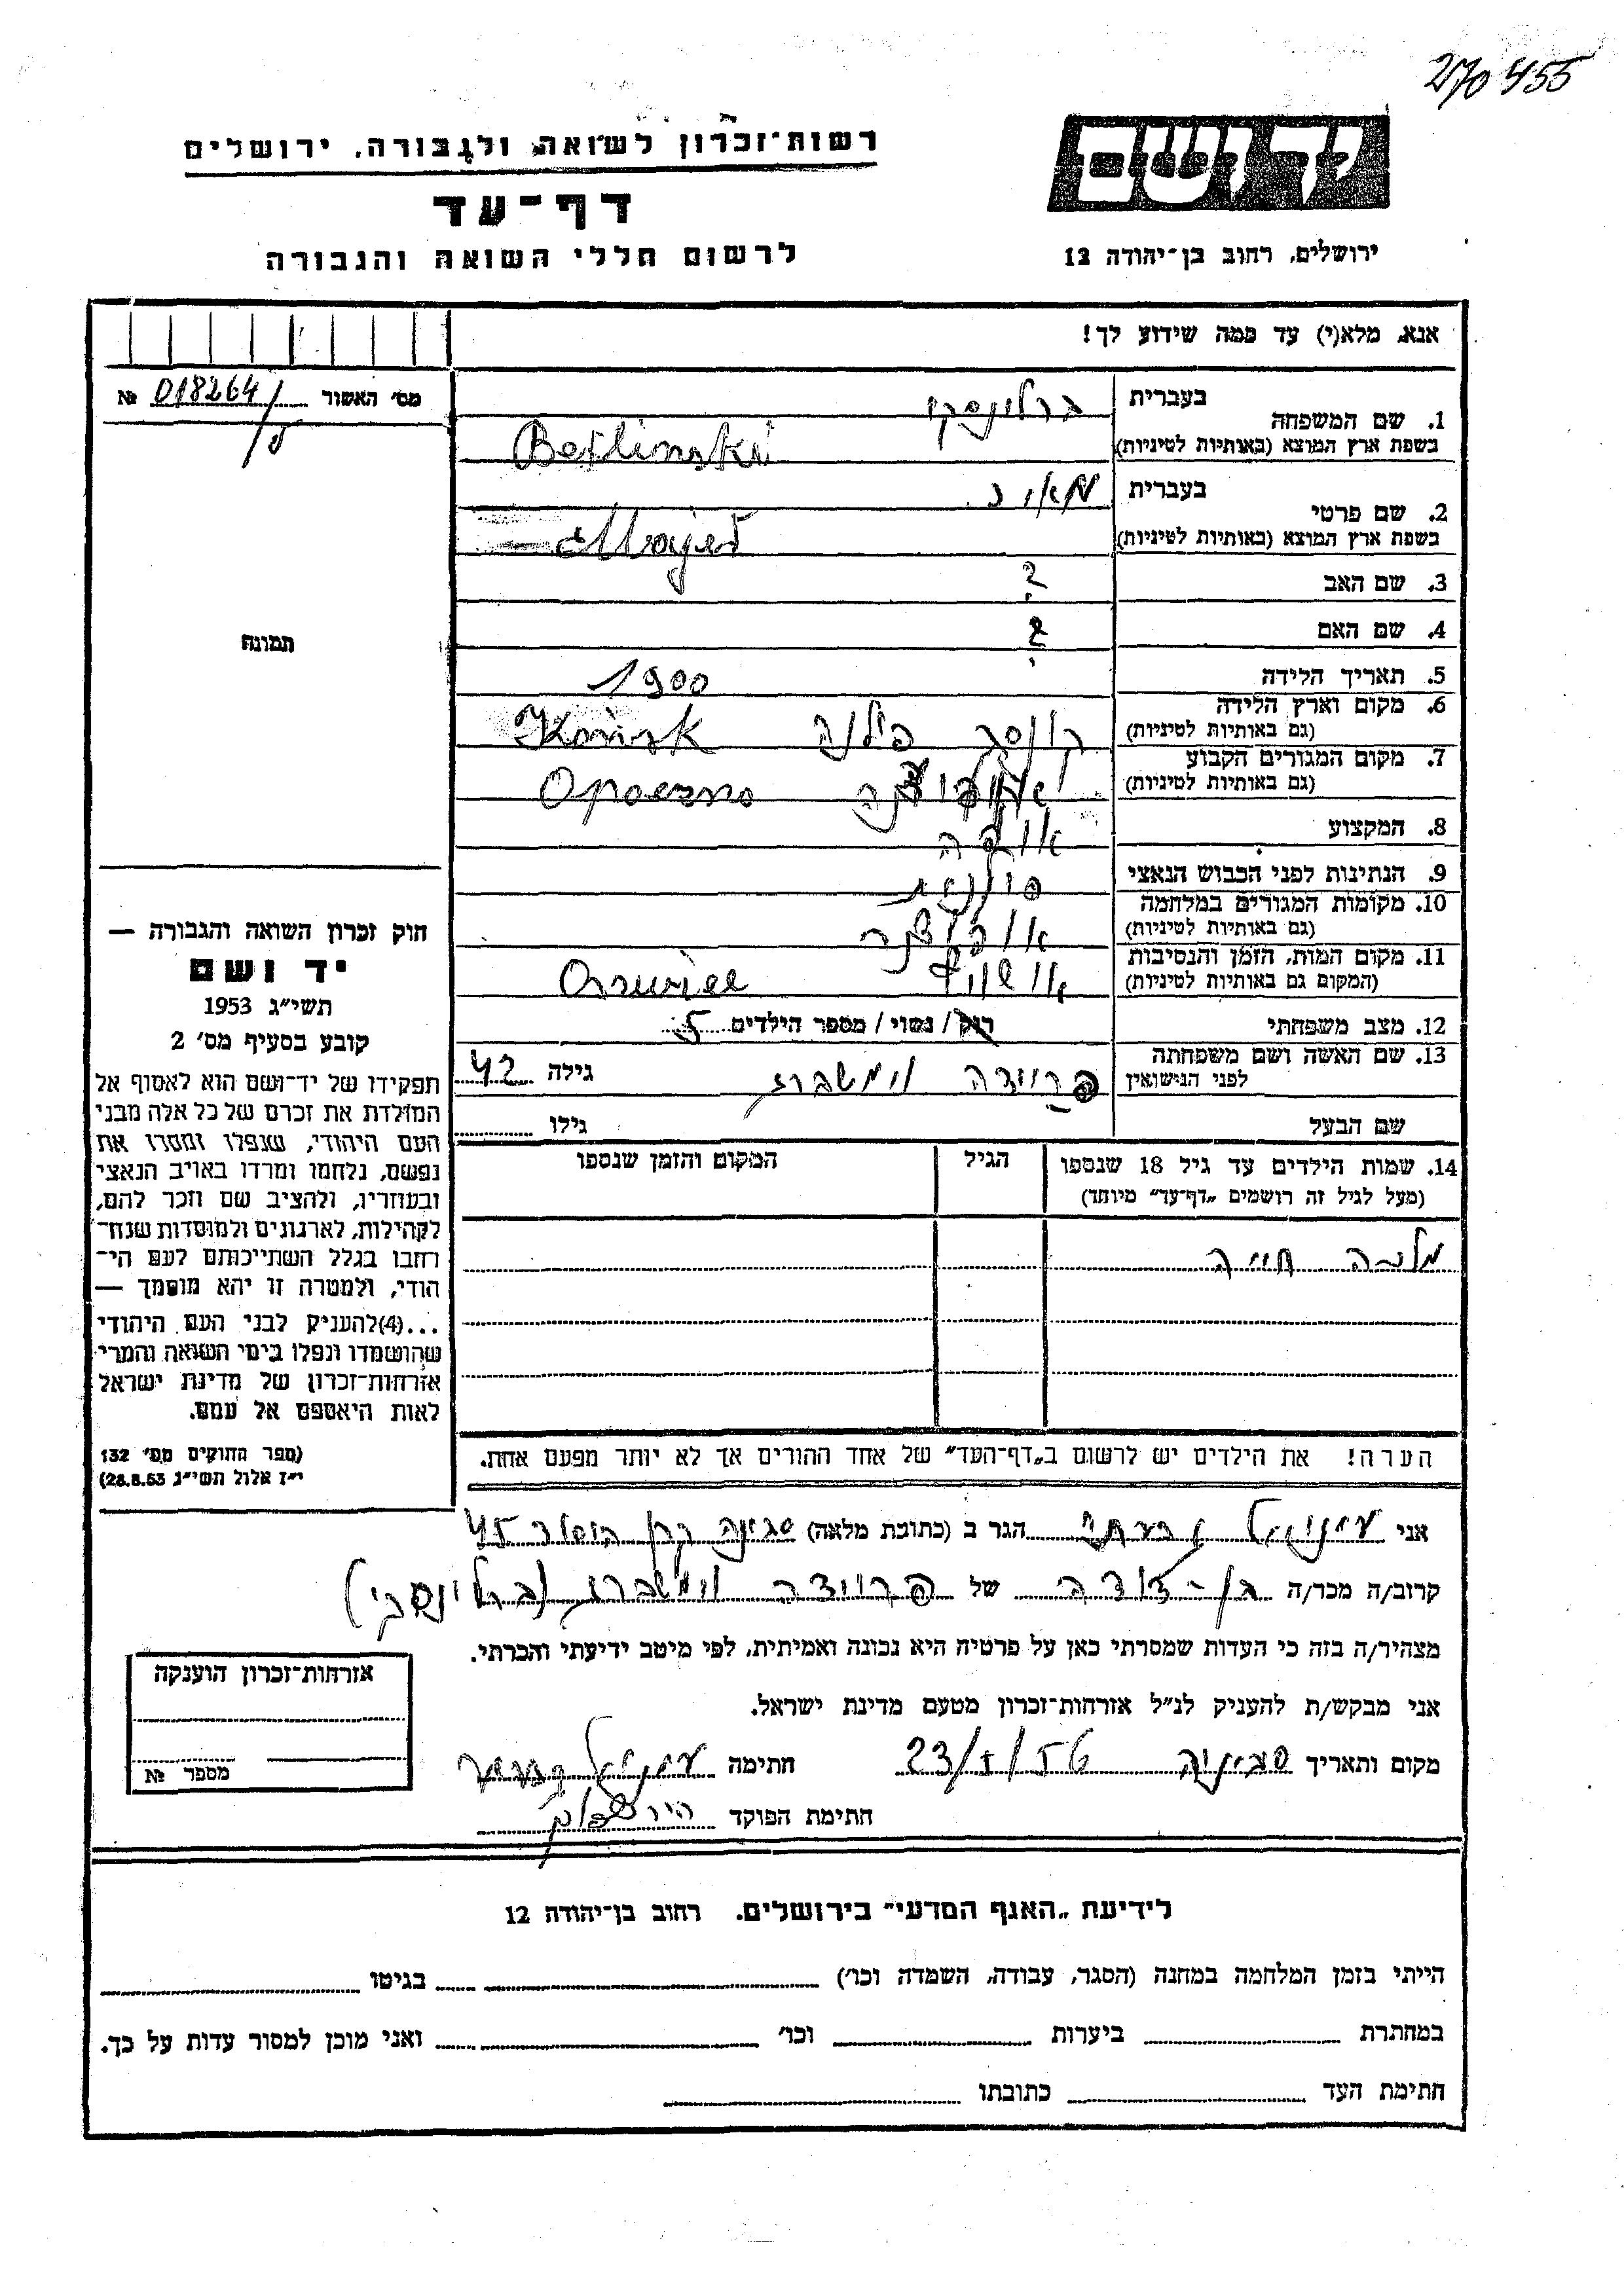 270455
רשות־זכרון לשואה ולגבורה, ירושלים
דף־עד
לרשום חללי השואה והגבורה
יד ושם
ירושלים, רחוב בן־יהודה 12
אנא, מלא(י) עד כמה שידוע לך!
מס׳ האשור 018264/ №
ל
1. שם המשפחה
בעברית ברלינסקי
בשפת ארץ המוצא (באותיות לטיניות) Berlinski
2. שם פרטי
בעברית מאיר
בשפת ארץ המוצא (באותיות לטיניות) Majer
3. שם האב ?
4. שם האם ?
5. תאריך הלידה 1900
6. מקום וארץ הלידה
(גם באותיות לטיניות) קונסק פילנה Końsk
7. מקום המגורים הקבוע
(גם באותיות לטיניות) Opoczno
8. המקצוע אופה
9. הנתינות לפני הכבוש הנאצי פולנית
10. מקומות המגורים במלחמה
(גם באותיות לטיניות) אופוצנה
11. מקום המות, הזמן והנסיבות
(המקום גם באותיות לטיניות)
12. מצב משפחתי רוק / נשוי / מספר הילדים 5
13. שם האשה ושם משפחתה
לפני הנישואין פרוידה וימשברג גילה 42
שם הבעל גילו
14. שמות הילדים עד גיל 18 שנספו
(מעל לגיל זה רושמים „דף־עד״ מיוחד)
הגיל
המקום והזמן שנספו
מלכה חייה
הערה! את הילדים יש לרשום ב„דף־העד״ של אחד ההורים אך לא יותר מפעם אחת.
תמונה
חוק זכרון השואה והגבורה —
יד ושם
תשי״ג 1953
קובע בסעיף מס׳ 2
תפקידו של יד־ושם הוא לאסוף אל
המולדת את זכרם של כל אלה מבני
העם היהודי, שנפלו ומסרו את
נפשם, נלחמו ומרדו באויב הנאצי
ובעוזריו, ולהציב שם וזכר להם,
לקהילות, לארגונים ולמוסדות שנח־
רחבו בגלל השתייכותם לעם הי־
הודי, ולמטרה זו יהא מוסמך —
...(4)להעניק לבני העם היהודי
שהושמדו ונפלו בימי השואה והמרי
אזרחות־זכרון של מדינת ישראל
לאות היאספם אל עמם.
(ספר החוקים מס׳ 132
י״ז אלול תשי״ג 28.8.53)
אני עמנואל הגר ב (כתובת מלאה) סביונה קרן היסוד 45
קרוב/ה מכר/ה בן-דודה של פרוידה וימשברג (ברלינסקי)
מצהיר/ה בזה כי העדות שמסרתי כאן על פרטיה היא נכונה ואמיתית, לפי מיטב ידיעתי והכרתי.
אני מבקש/ת להעניק לנ״ל אזרחות־זכרון מטעם מדינת ישראל.
מקום ותאריך סביונה 23/5/56 חתימה עמנואל
חתימת הפוקד
אזרחות־זכרון הוענקה
מספר №
לידיעת „האגף המדעי״ בירושלים. רחוב בן־יהודה 12
הייתי בזמן המלחמה במחנה (הסגר, עבודה, השמדה וכו׳) בגיטו
במחתרת ביערות וכו׳ ואני מוכן למסור עדות על כך.
חתימת העד כתובתו